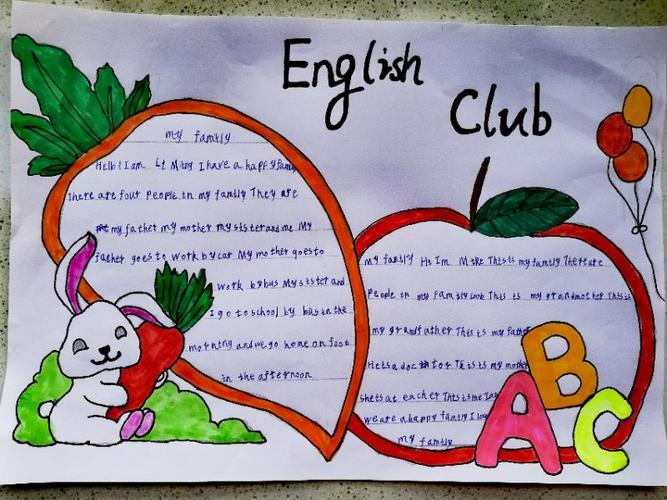 English
Club
my family
Hello I am Li Ming I have a happy family
There are four People in my family They are
my father my mother my sister and me My
father goes to work by car My mother goes to
work by bus My sister and
I go to school by bus in the
morning and we go home on foot
in the afternoon
my family Hi Im Mike This is my family There are
People in my family look This is my grandmother This is
my grandfather This is my father
He is a doctor This is my mother
she is at eacher This is me I am
we are a happy family I love
my family
A B C